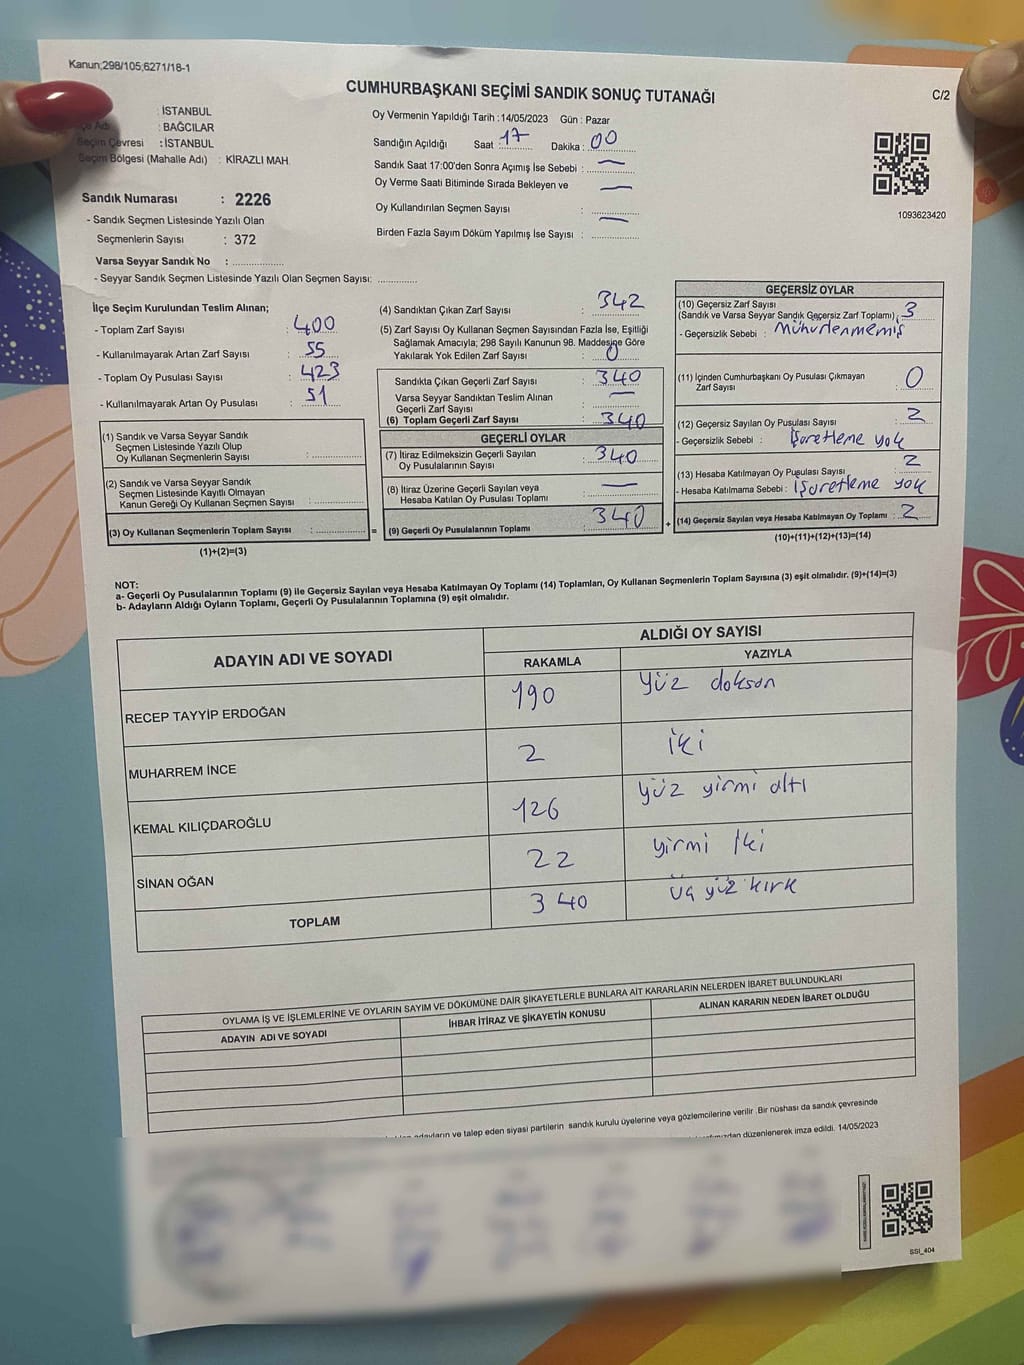 Kanun;298/105;6271/18-1
C/2
CUMHURBAŞKANI SEÇİMİ SANDIK SONUÇ TUTANAĞI
: İSTANBUL
Adı : BAĞCILAR
Seçim Çevresi : İSTANBUL
Seçim Bölgesi (Mahalle Adı) : KİRAZLI MAH.
Sandık Numarası : 2226
- Sandık Seçmen Listesinde Yazılı Olan
Seçmenlerin Sayısı : 372
Varsa Seyyar Sandık No :
- Seyyar Sandık Seçmen Listesinde Yazılı Olan Seçmen Sayısı:
Oy Vermenin Yapıldığı Tarih :14/05/2023 Gün : Pazar
Sandığın Açıldığı Saat : 17 Dakika : 00
Sandık Saat 17:00'den Sonra Açımış İse Sebebi : —
Oy Verme Saati Bitiminde Sırada Bekleyen ve
Oy Kullandırılan Seçmen Sayısı : —
Birden Fazla Sayım Döküm Yapılmış İse Sayısı : —
1093623420
İlçe Seçim Kurulundan Teslim Alınan;
- Toplam Zarf Sayısı : 400
- Kullanılmayarak Artan Zarf Sayısı : 55
- Toplam Oy Pusulası Sayısı : 423
- Kullanılmayarak Artan Oy Pusulası : 51
(1) Sandık ve Varsa Seyyar Sandık
Seçmen Listesinde Yazılı Olup
Oy Kullanan Seçmenlerin Sayısı :
(2) Sandık ve Varsa Seyyar Sandık
Seçmen Listesinde Kayıtlı Olmayan
Kanun Gereği Oy Kullanan Seçmen Sayısı :
(3) Oy Kullanan Seçmenlerin Toplam Sayısı : =
(1)+(2)=(3)
(4) Sandıktan Çıkan Zarf Sayısı : 342
(5) Zarf Sayısı Oy Kullanan Seçmen Sayısından Fazla İse, Eşitliği
Sağlamak Amacıyla; 298 Sayılı Kanunun 98. Maddesine Göre
Yakılarak Yok Edilen Zarf Sayısı : 0
Sandıkta Çıkan Geçerli Zarf Sayısı : 340
Varsa Seyyar Sandıktan Teslim Alınan
Geçerli Zarf Sayısı : —
(6) Toplam Geçerli Zarf Sayısı : 340
GEÇERLİ OYLAR
(7) İtiraz Edilmeksizin Geçerli Sayılan
Oy Pusulalarının Sayısı : 340
(8) İtiraz Üzerine Geçerli Sayılan veya
Hesaba Katılan Oy Pusulası Toplamı : —
(9) Geçerli Oy Pusulalarının Toplamı : 340 +
GEÇERSİZ OYLAR
(10) Geçersiz Zarf Sayısı
(Sandık ve Varsa Seyyar Sandık Geçersiz Zarf Toplamı) : 3
- Geçersizlik Sebebi : Mühürlenmemiş
(11) İçinden Cumhurbaşkanı Oy Pusulası Çıkmayan
Zarf Sayısı : 0
(12) Geçersiz Sayılan Oy Pusulası Sayısı : 2
- Geçersizlik Sebebi : İşaretleme yok
(13) Hesaba Katılmayan Oy Pusulası Sayısı : 2
- Hesaba Katılmama Sebebi : İşaretleme yok
(14) Geçersiz Sayılan veya Hesaba Katılmayan Oy Toplamı : 2
(10)+(11)+(12)+(13)=(14)
NOT:
a- Geçerli Oy Pusulalarının Toplamı (9) ile Geçersiz Sayılan veya Hesaba Katılmayan Oy Toplamı (14) Toplamları, Oy Kullanan Seçmenlerin Toplam Sayısına (3) eşit olmalıdır. (9)+(14)=(3)
b- Adayların Aldığı Oyların Toplamı, Geçerli Oy Pusulalarının Toplamına (9) eşit olmalıdır.
ADAYIN ADI VE SOYADI
ALDIĞI OY SAYISI
RAKAMLA YAZIYLA
RECEP TAYYİP ERDOĞAN 190 yüz doksan
MUHARREM İNCE 2 iki
KEMAL KILIÇDAROĞLU 126 yüz yirmi altı
SİNAN OĞAN 22 yirmi iki
TOPLAM 340 üç yüz kırk
OYLAMA İŞ VE İŞLEMLERİNE VE OYLARIN SAYIM VE DÖKÜMÜNE DAİR ŞİKAYETLERLE BUNLARA AİT KARARLARIN NELERDEN İBARET BULUNDUKLARI
ADAYIN ADI VE SOYADI
İHBAR İTİRAZ VE ŞİKAYETİN KONUSU
ALINAN KARARIN NEDEN İBARET OLDUĞU
adayların ve talep eden siyasi partilerin sandık kurulu üyelerine veya gözlemcilerine verilir. Bir nüshası da sandık çevresinde
düzenlenerek imza edildi. 14/05/2023
SSI_404